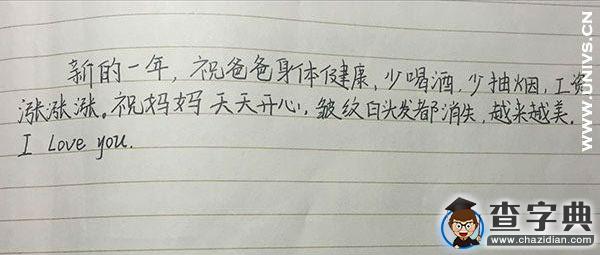 新的一年，祝爸爸身体健康，少喝酒，少抽烟，工资
涨涨涨。祝妈妈天天开心，皱纹白头发都消失，越来越美。
I Love you.
www.UNIVS.CN
查字典
www.chazidian.com